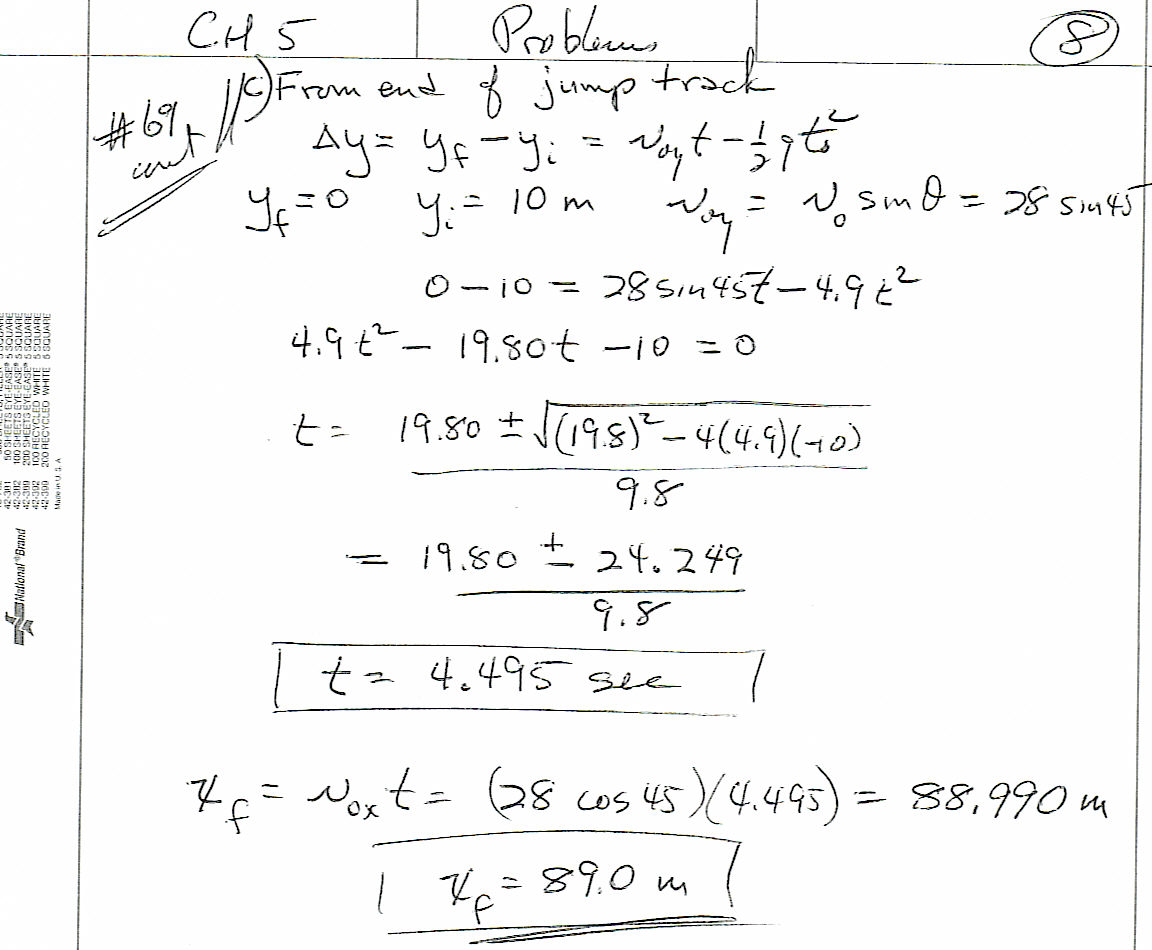 CH 5 Problems 8
#69 cont c) From end of jump track
Δy = y_f - y_i = v_oy t - 1/2 g t²
y_f = 0 y_i = 10 m v_oy = v_o sin θ = 28 sin 45
0 - 10 = 28 sin 45 t - 4.9 t²
4.9 t² - 19.80 t - 10 = 0
t = 19.80 ± √((19.8)² - 4(4.9)(-10))
9.8
= 19.80 ± 24.249
9.8
t = 4.495 sec
x_f = v_ox t = (28 cos 45)(4.495) = 88.990 m
x_f = 89.0 m
42-381 50 SHEETS EYE-EASE® 5 SQUARE
42-382 100 SHEETS EYE-EASE® 5 SQUARE
42-389 200 SHEETS EYE-EASE® 5 SQUARE
42-392 100 RECYCLED WHITE 5 SQUARE
42-399 200 RECYCLED WHITE 5 SQUARE
Made in U.S.A.
National®Brand